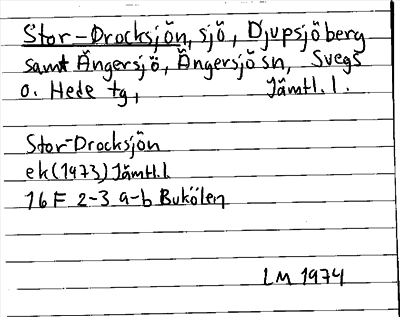 Stor-Drocksjön, sjö, Djupsjöberg
samt Ängersjö, Ängersjö sn, Svegs
o. Hede tg, Jämtl. l.
Stor-Drocksjön
ek (1973) Jämtl. l
16 F 2-3 a-b Bukölen
LM 1974